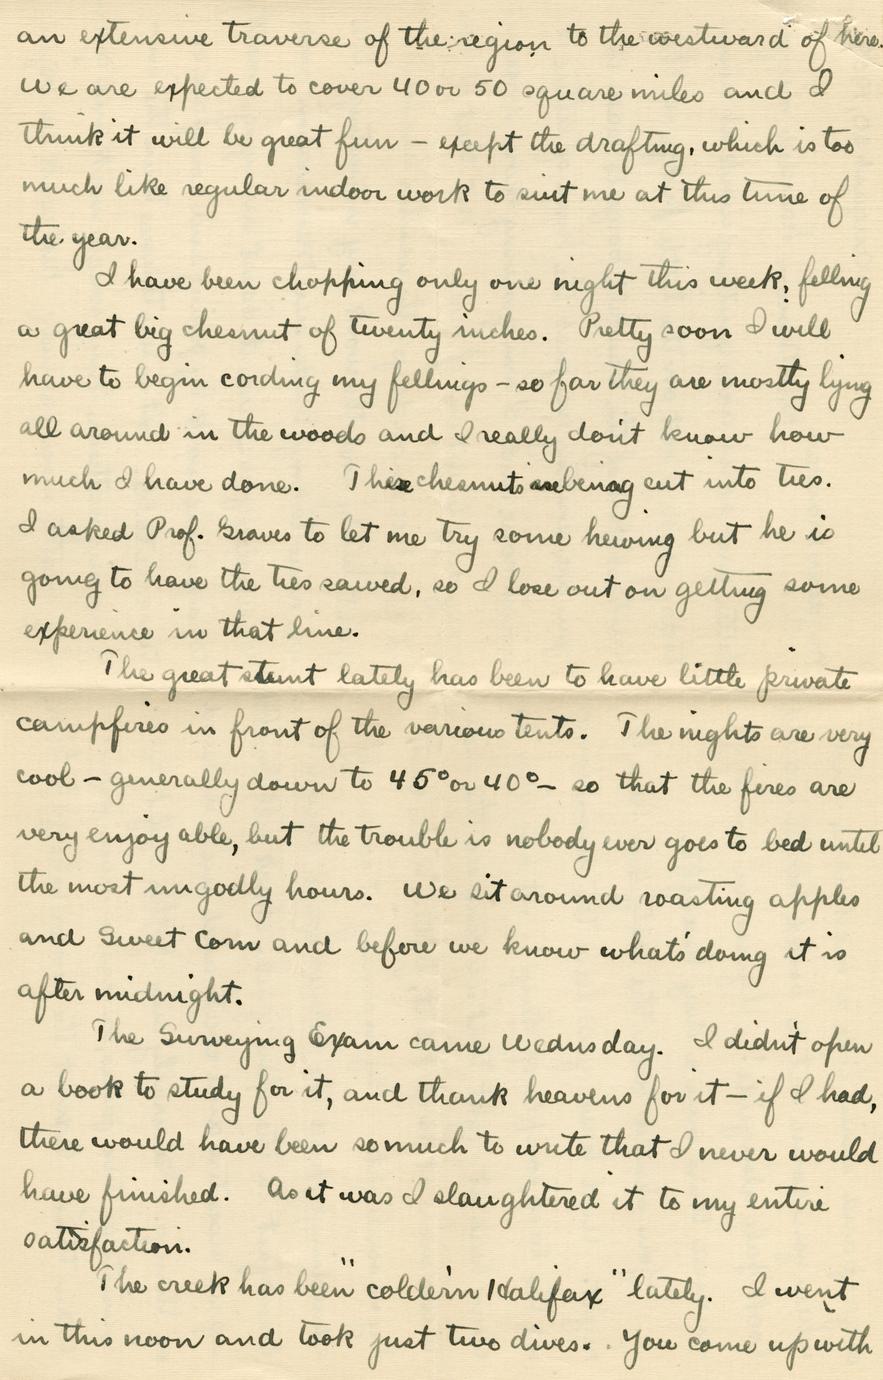 an extensive traverse of the region to the westward of here.
We are expected to cover 40 or 50 square miles and I
think it will be great fun – except the drafting, which is too
much like regular indoor work to suit me at this time of
the year.
I have been chopping only one night this week, felling
a great big chesnut of twenty inches. Pretty soon I will
have to begin cording my fellings – so far they are mostly lying
all around in the woods and I really don't know how
much I have done. These chesnuts are being cut into ties.
I asked Prof. Graves to let me try some hewing but he is
going to have the ties sawed, so I lose out on getting some
experience in that line.
The great stunt lately has been to have little private
campfires in front of the various tents. The nights are very
cool – generally down to 45° or 40° – so that the fires are
very enjoyable, but the trouble is nobody ever goes to bed until
the most ungodly hours. We sit around roasting apples
and Sweet Corn and before we know what's doing it is
after midnight.
The Surveying Exam came Wednsday. I didn't open
a book to study for it, and thank heavens for it – if I had,
there would have been so much to write that I never would
have finished. As it was I slaughtered it to my entire
satisfaction.
The creek has been "colder'n Halifax" lately. I went
in this noon and took just two dives. You come up with